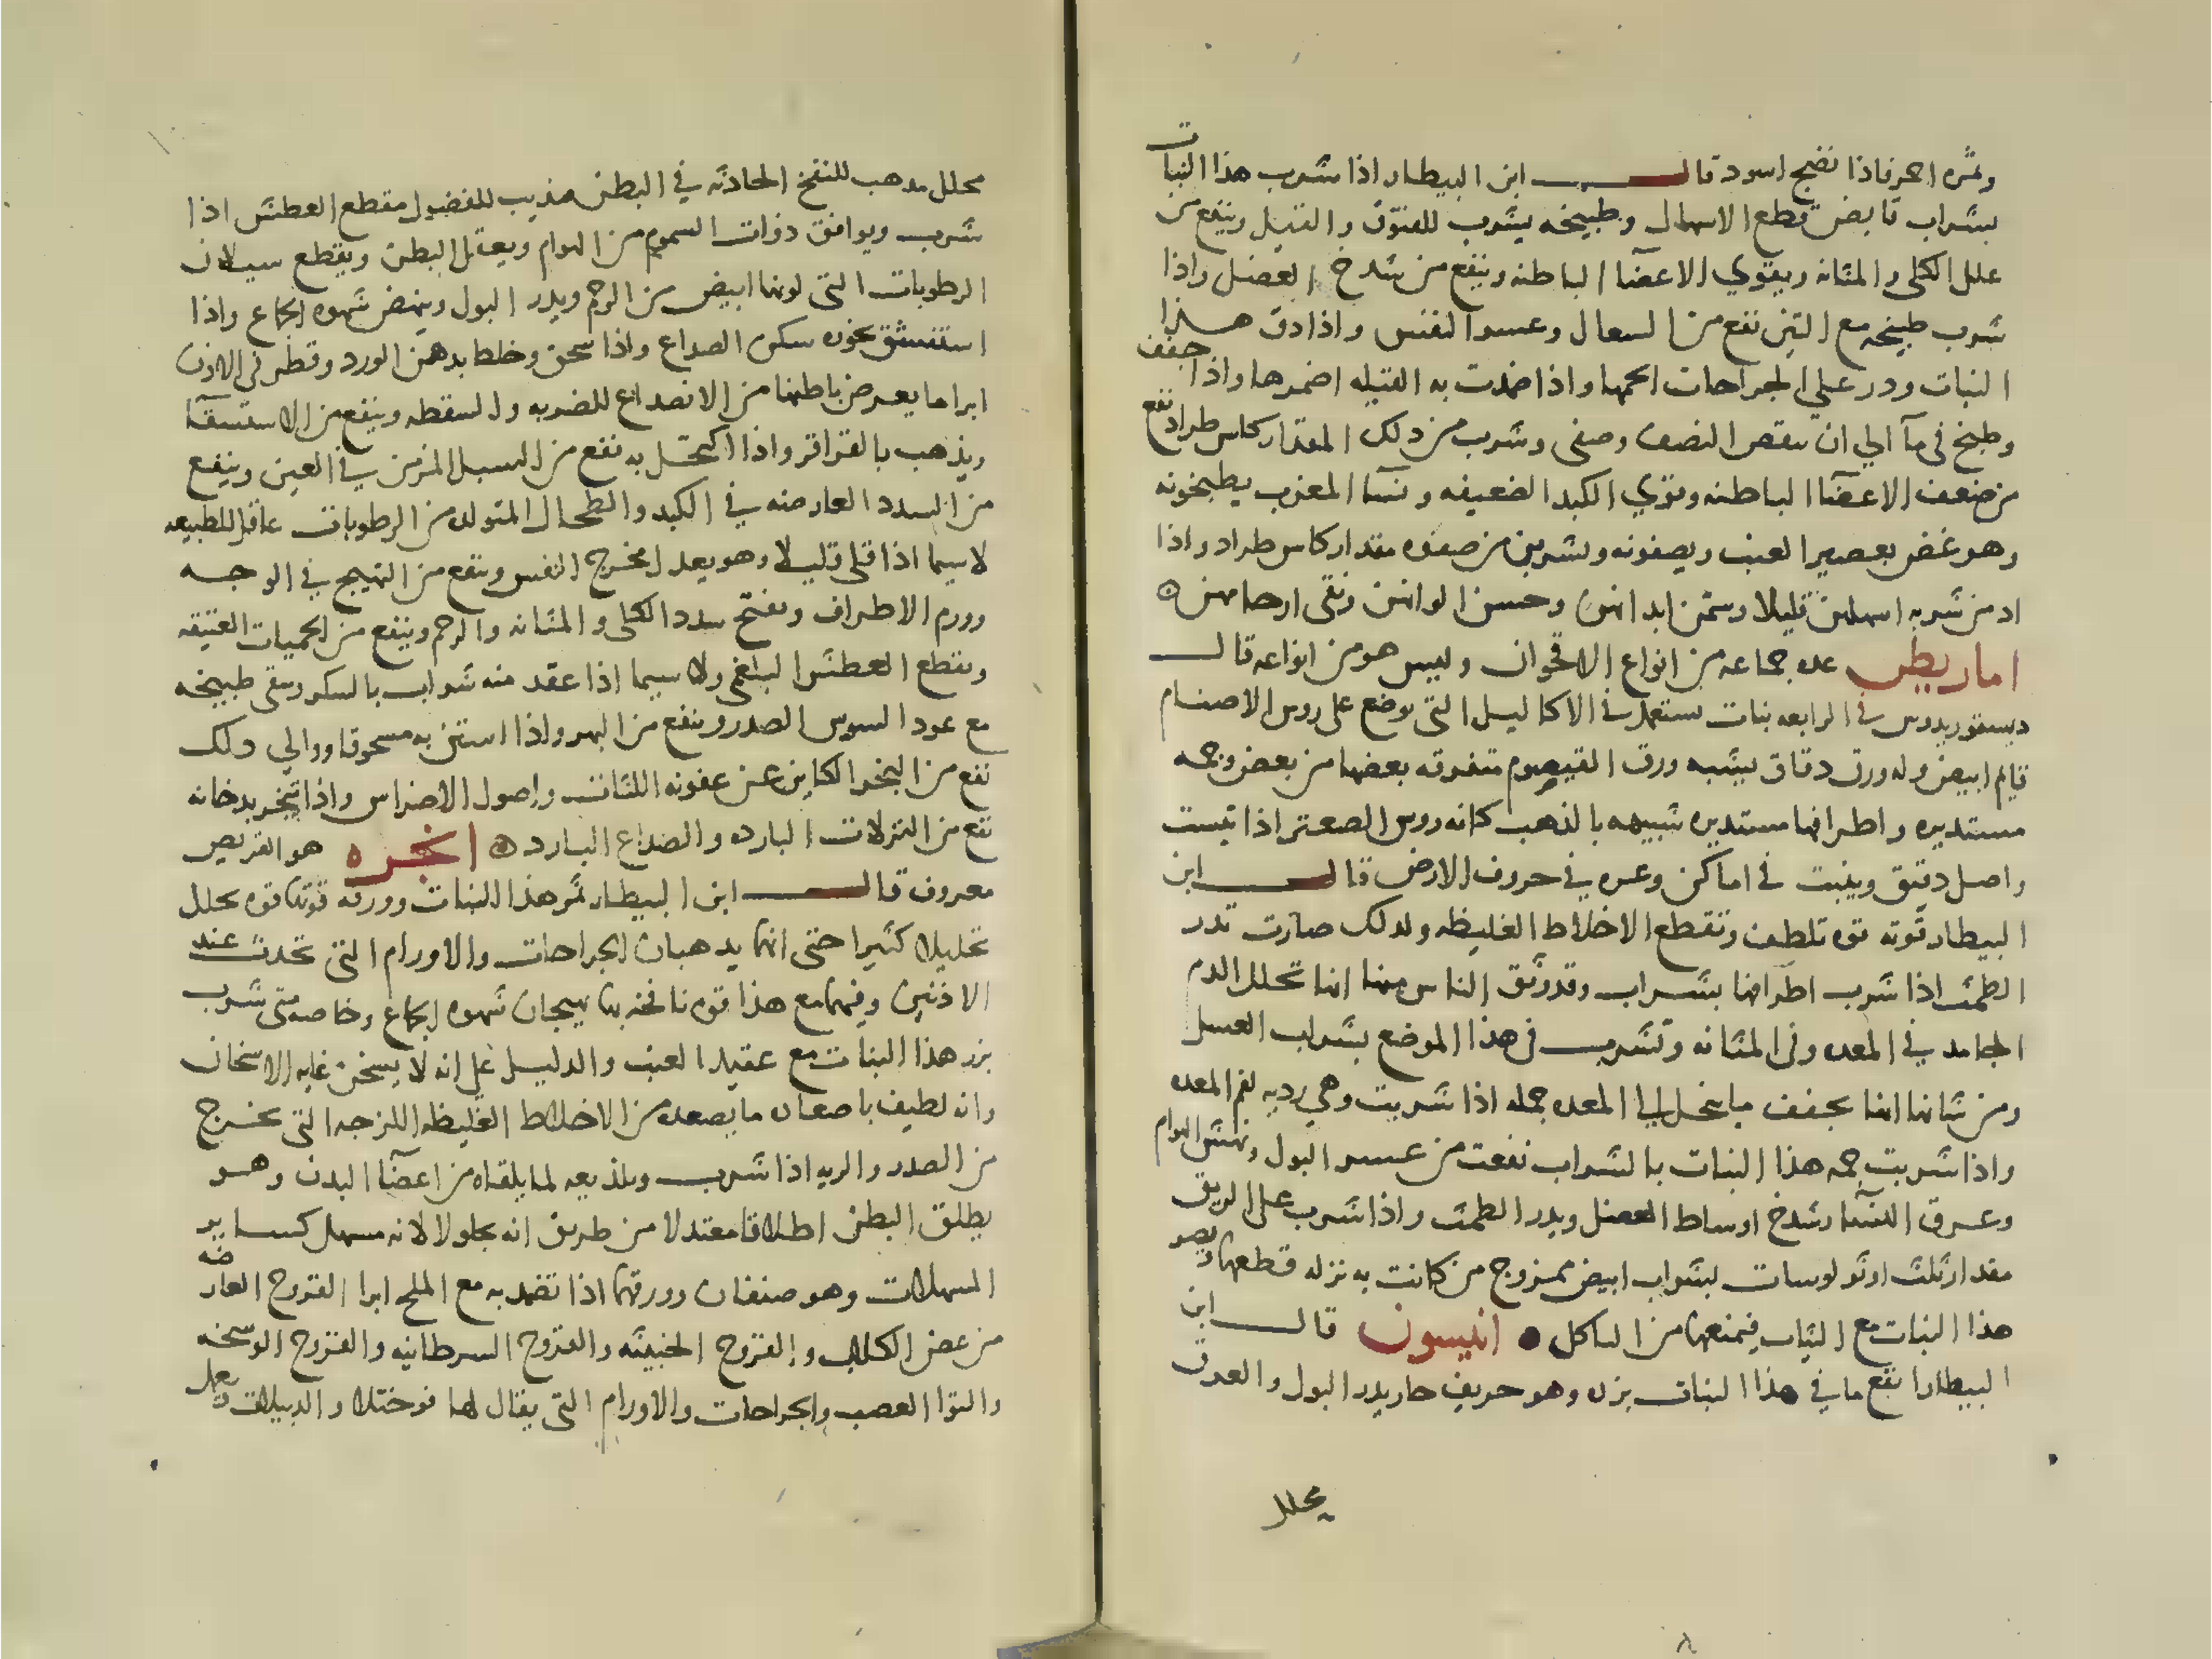 وثمره احمر فاذا نضج اسود قال ابن البيطار اذا شرب هذا النبات
بشراب قابض قطع الاسهال وطبيخه يشرب للفتوق والفتيل وينفع من
علل الكلى والمثانه ويقوي الاعضآ الباطنه وينفع من شدخ العضل واذا
شرب طبيخه مع التين نفع من السعال وعسر النفس واذا دق هذا
النبات وذر علي الجراحات الحمها واذا ضمدت به القتيله اضمرها واذا جفف
وطبخ في مآ الي ان ينقص النصف وصفى وشرب من ذلك المقدار كاس طراد نفع
من ضعف الاعضآ الباطنه ويقوي الكبد الضعيفه ونسآ المغرب يطبخونه
وهو غض بعصير العنب ويصفونه ويشربن من صفوه مقدار كاس طراد واذا
اد من شربه اسهلهن قليلا وسمن ابدانهن وحسن الوانهن ونقى ارحامهن
اماريطن عده جماعه من انواع الاقحوان وليس هو من انواعه قال
ديسقوريدوس في الرابعه نبات يستعمل في الاكاليل التي توضع على روس الاصنام
قايم ابيض وله ورق دقاق يشبه ورق القيصوم متفرقه بعضها من بعض وجمه
مستديره واطرافها مستديره شبيهه بالذهب كانه روس الصعتر اذا يبست
واصل دقيق وينبت في اماكن وعره في حروف الارض قال ابن
البيطار قوته قوه تلطف وتقطع الاخلاط الغليظه ولذلك صارت تدر
الطمث اذا شرب اطرافها بشراب وقد وثق الناس منها انها تحلل الدم
الجامد في المعده وفي المثانه وتشرب في هذا الموضع بشراب العسل
ومن شانها انها تجفف ما ينحل الي المعده جمله اذا شربت وهي رديه لفم المعده
واذا شربت جمه هذا النبات بالشراب نفعت من عسر البول ونهش الهوام
وعرق النسآ وشدخ اوساط العضل ويدر الطمث واذا شرب على الريق
مقدار ثلث اوثولوسات بشراب ابيض ممزوج من كانت به نزله قطعها ويصر
هذا النبات مع الثياب فيمنعها من التاكل انيسون قال ابن
البيطار انفع ما في هذا النبات بزره وهو حريف حار يدر البول والعرق
يحلل
محلل مذهب للنفخ الحادثه في البطن مذيب للفضول مقطع العطش اذا
شرب ويوافق ذوات السموم من الهوام ويعقل البطن ويقطع سيلان
الرطوبات التي لونها ابيض من الرحم ويدر البول وينهض شهوه الجماع واذا
استنشق بخوره سكن الصداع واذا سحق وخلط بدهن الورد وقطر في الاذن
ابرا ما يعرض باطنها من الانصداع للضربه والسقطه وينفع من الاستسقآ
ويذهب بالقراقر واذا اكتحل به نفع من السبل المزمن في العين وينفع
من السدد العارضه في الكبد والطحال المتولده من الرطوبات عاقل للطبيعه
لا سيما اذا قلى قليلا وهو يعدل مخرج النفس وينفع من التهيج في الوجه
وورم الاطراف ويفتح سدد الكلى والمثانه والرحم وينفع من الحميات العتيقه
ويقطع العطش البلغمي ولا سيما اذا عقد منه شراب بالسكر وينقي طبيخه
مع عود السوس الصدر وينفع من البهر واذا استن به مسحوقا ووالي ذلك
نفع من البخر الكاين عن عفونه اللثات واصول الاضراس واذا تبخر بدخانه
نفع من النزلات البارده والصداع البارد انجره هو القريص
معروف قال ابن البيطار ثمر هذا النبات وورقه قوتها قوه تحلل
تحليلا كثيرا حتى انها يذهبان الجراحات والاورام التي تحدث عند
الاذنين وفيها مع هذا قوه نافخه بها يهيجان شهوه الجماع وخاصه متى شرب
بزر هذا النبات مع عقيد العنب والدليل علي انه لا يسخن غايه الاسخان
وانه لطيف باصعاده ما يصعده من الاخلاط الغليظه اللزجه التي تخرج
من الصدر والريه اذا شرب وبلذيعه لما يلقاه من اعضآ البدن وهو
يطلق البطن اطلاقا معتدلا من طريق انه يجلو لا لانه مسهل كساير
المسهلات وهو صنفان وورقها اذا تضمد به مع الملح ابرا القروح العارضه
من عض الكلاب والقروح الخبيثه والقروح السرطانيه والقروح الوسخه
والتوا العصب والجراحات والاورام التي يقال لها فوختلا والدبيلات